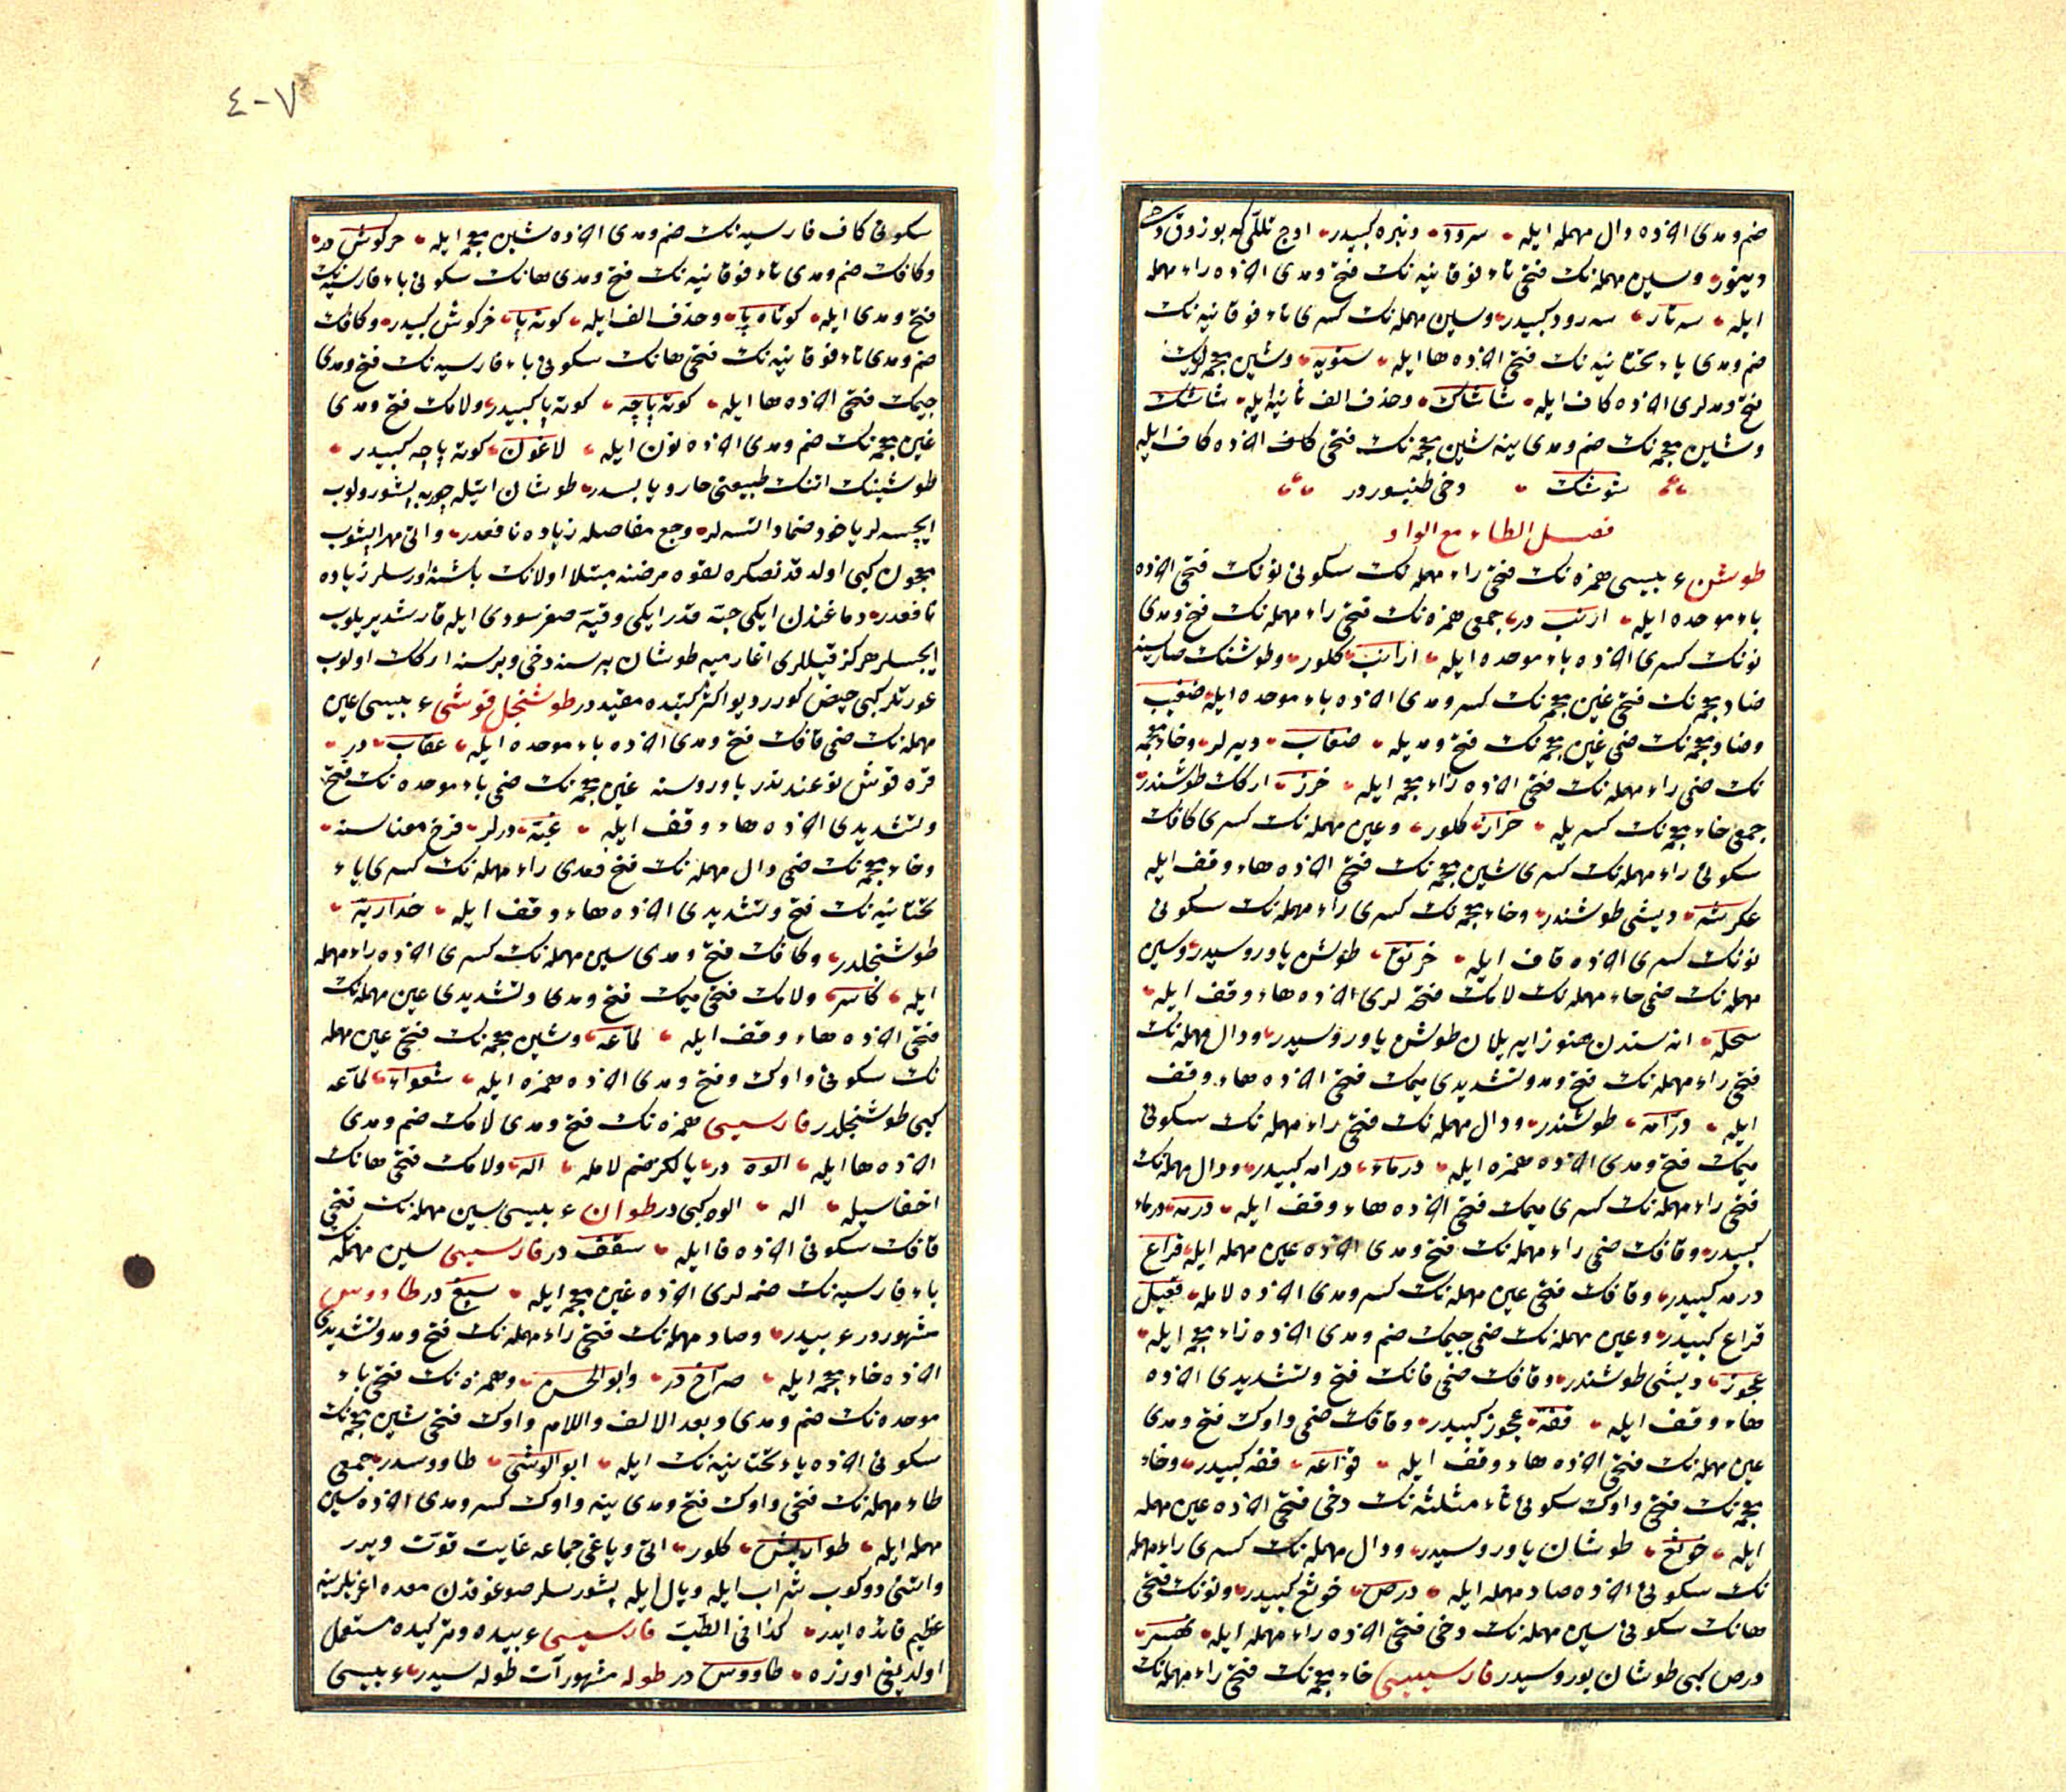 ضم ومدی اخرده دال مهمله ایله سرود ونبره کبیدر اوج تللی که بوزوق دخی
دینور وسین مهمله نک فتحی تاء فوقانیه نک فتح ومدی اخرده راء مهمله
ایله سه تار سه رود کبیدر وسین مهمله نک کسری تاء فوقانیه نک
ضم ومدی یاء تحتانیه نک فتحی اخرده ها ایله ستویه وشین معجمه لرک
فتح ومدلری اخرده کاف ایله شاشاک وحذف الف ثانیه ایله شاشک
وشین معجمه نک ضم ومدی ینه شین معجمه نک فتحی اخرده کاف ایله
شوشک دخی طنبوردر
فصل الطاء مع الواو
طوشن عربیسی همزه نک فتحی راء مهمله نک سکونی نونک فتحی اخرده
باء موحده ایله ارنب در جمعی همزه نک فتحی راء مهمله نک فتح ومدی
نونک کسری اخرده باء موحده ایله ارانب کلور وطوشنک
ضاد معجمه نک فتحی غین معجمه نک کسر ومدی اخرده باء موحده ایله ضغیب
وضاد معجمه نک ضمی غین معجمه نک فتح ومدیله ضغاب دیرلر وخاء معجمه
نک ضمی راء مهمله نک فتحی اخرده زاء معجمه ایله خرز ارکک طوشندر
جمعی خاء معجمه نک کسریله خزان کلور وعین مهمله نک کسری کافک
سکونی راء مهمله نک کسری شین معجمه نک فتحی اخرده هاء وقف ایله
عکرشه دیشی طوشندر وخاء معجمه نک کسری راء مهمله نک سکونی
نونک کسری اخرده قاف ایله خرنق طوشن یاوروسیدر وسین
مهمله نک ضمی حاء مهمله نک لامک فتحه لری اخرده هاء وقف ایله
سحله انه سندن هنوز ایریلان طوشن یاوروسیدر ودال مهمله نک
فتحی راء مهمله نک فتح ومد وتشدیدی میمک فتحی اخرده هاء وقف
ایله درامه طوشندر ودال مهمله نک فتحی راء مهمله نک سکونی
میمک فتح ومدی اخرده همزه ایله درماء درامه کبیدر ودال مهمله نک
فتحی راء مهمله نک کسری میمک فتحی اخرده هاء وقف ایله درمه درماء
کبیدر وقافک ضمی راء مهمله نک فتح ومدی اخرده عین مهمله ایله قراع
درمه کبیدر وقافک فتحی عین مهمله نک کسر ومدی اخرده لامله قعیل
قراع کبیدر وعین مهمله نک ضمی جیمک ضم ومدی اخرده زاء معجمه ایله
عجوز دیشی طوشندر وقافک ضمی فانک فتح وتشدیدی اخرده
هاء وقف ایله قفه عجوز کبیدر وقافک ضمی واوک فتح ومدی
عین مهمله نک فتحی اخرده هاء وقف ایله قواعه قفه کبیدر وخاء
معجمه نک فتحی واوک سکونی ثاء مثلثه نک دخی فتحی اخرده عین مهمله
ایله خوثع طوشان یاوروسیدر ودال مهمله نک کسری راء مهمله
نک سکونی اخرده صاد مهمله ایله درص خوثع کبیدر ونونک فتحی
هانک سکونی سین مهمله نک دخی فتحی اخرده راء مهمله ایله نهسر
درص کبی طوشان یوروسیدر فارسیسی خاء معجمه نک فتحی راء مهمله نک
٤-٧
سکونی کاف فارسیه نک ضم ومدی اخرده شین معجمه ایله خرکوش در
وکافک ضم ومدی تاء فوقانیه نک فتح ومدی هانک سکونی باء فارسیه نک
فتح ومدی ایله کوتاه پا وحذف الف ایله کوته پا خرکوش کبیدر وکافک
ضم ومدی تاء فوقانیه نک فتحی هانک سکونی باء فارسیه نک فتح ومدی
جیمک فتحی اخرده ها ایله کوته پاچه کوته پا کبیدر ولامک فتح ومدی
غین معجمه نک ضم ومدی اخرده نون ایله لاغون کوته پاچه کبیدر
طوشینک اتنک طبیعتی حار ویابسدر طوشان اتیله چوربه پشورولوب
ایچسه لر یاخود ضماد ایتسه لر وجع مفاصله زیاده نافعدر واتی مهرا پشوب
معجون کبی اولدقدنصکره لقوه مرضنه مبتلا اولانک باشنه اورسلر زیاده
نافعدر دماغندن ایکی حبه قدر ایکی وقیه صغر سودی ایله قارشدیریلوب
ایچسلر هرکز قیللری اغارمیه طوشان بر سنه دخی وبر سنه ارکک اولوب
عورتلر کبی حیض کورر دیو اکثر کتبده مقیددر طوشنجل قوشی عربیسی عین
مهمله نک ضمی قافک فتح ومدی اخرده باء موحده ایله عقاب در
قره قوش نوعندندر یاوروسنه غین معجمه نک ضمی باء موحده نک فتح
وتشدیدی اخرده هاء وقف ایله غبه درلر فرخ معناسنه
وخاء معجمه نک ضمی دال مهمله نک فتح ومدی راء مهمله نک کسری یاء
تحتانیه نک فتح وتشدیدی اخرده هاء وقف ایله خداریه
طوشنجلدر وکافک فتح ومدی سین مهمله نک کسری اخرده راء مهمله
ایله کاسر ولامک فتحی میمک فتح ومدی وتشدیدی عین مهمله نک
فتحی اخرده هاء وقف ایله لماعه وشین معجمه نک فتحی عین مهمله
نک سکونی واوک وفتح ومدی اخرده همزه ایله شعواء لماعه
کبی طوشنجلدر فارسیسی همزه نک فتح ومدی لامک ضم ومدی
اخرده ها ایله الوه در یالکز ضم لامله اله ولامک فتحی هانک
اخفاسیله اله الوه کبی در طوان عربیسی سین مهمله نک فتحی
قافک سکونی اخرده فا ایله سقف در فارسیسی سین مهمله
باء فارسیه نک ضمه لری اخرده غین معجمه ایله سپغ در طاووس
مشهوردر عربیدر وصاد مهمله نک فتحی راء مهمله نک فتح ومد وتشدیدی
اخرده خاء معجمه ایله صراخ در وابو الحسن وهمزه نک فتحی باء
موحده نک ضم ومدی وبعد الالف واللام واوک فتحی شین معجمه نک
سکونی اخرده یاء تحتانیه نک ایله ابو الوشی طاووسدر جمعی
طاء مهمله نک فتحی واوک فتح ومدی ینه واوک کسر ومدی اخرده سین
مهمله ایله طواویس کلور اتی ویاغی جماعه غایت قوت ویرر
واتنی دوکوب شراب ایله وبال ایله پشورسلر صوغوقدن معده اغریلرینه
عظیم فائده ایدر کذا فی الطب فارسیسی عربیده وترکیده مستعمل
اولدیغی اوزره طاووس در طوله مشهور آت طوله سیدر عربیسی